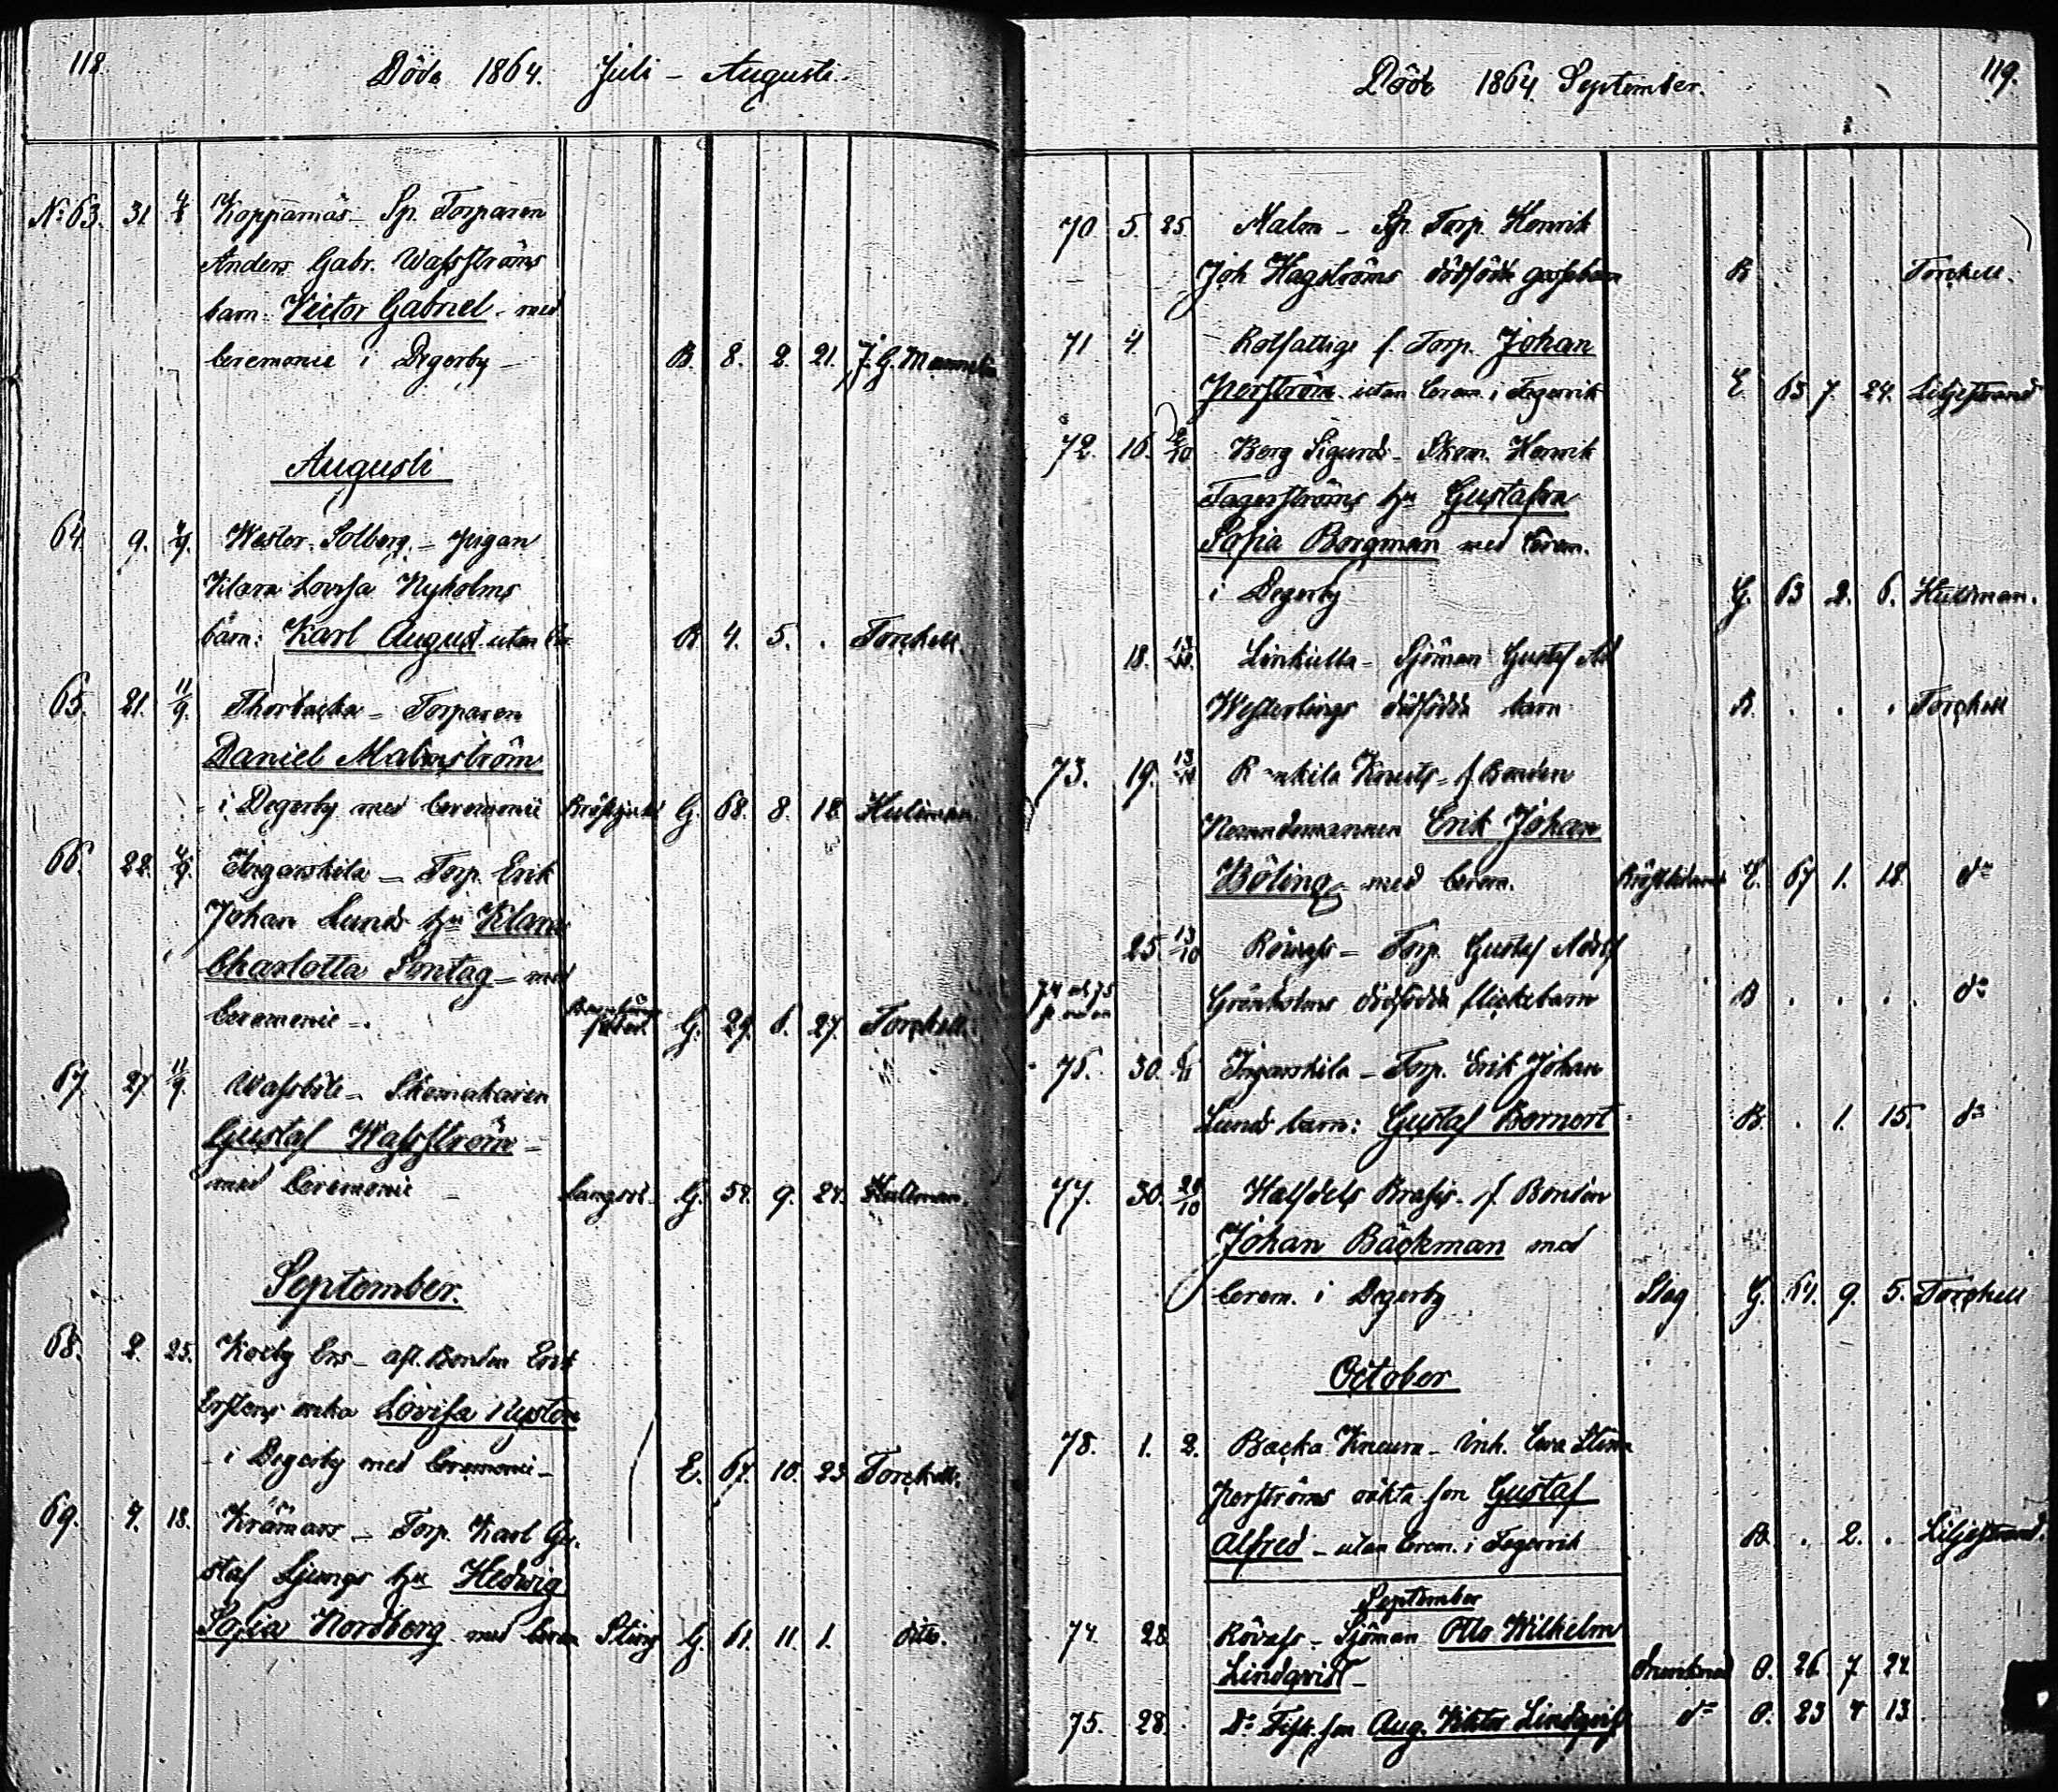 118.
Döde 1864. Juli - Augusti.
No 63. 31. 4/8 Koppamäs - Sp. Torparen
Anders Gabr. Wassströms
barn Victor Gabriel - med
Ceremonie i Degerby - B. 8. 2. 21. J. G. Mannelin
Augusti
64. 9. 4/9. Wester Solberg. - Pigan
Klara Lovisa Nyholms
barn: Karl August utan Cer. B 4. 5. . Torckell.
65. 21. 11/9. Thorbacka - Torparen
Daniel Malmström
- i Degerby med Ceremonie G. 68. 8. 18. Hultman.
66. 22. 4/9. Ingarskila - Torp. Erik
Johan Lunds hu Klara
Charlotta Sontag - med
Ceremonie -. G. 29. 6. 27. Torckell.
67. 27. 11/9. Wassböle - Skomakaren
Gustaf Wassström -
med Ceremonie - Lungsot. G. 54. 9. 24. Hultman.
September.
68. 2. 25. Kocby Ers - afl. Bonden Erik
Erstens enka Lovisa Nysten
- i Degerby med Ceremonie - E. 67. 10. 23 Torckell.
69. 7. 18. Krämars - Torp. Karl Gu-
staf Ljungs hu Hedvig
Sofia Nordberg med Cerem Sting G. 61. 11. 1. ditto.
119.
Döde 1864 September.
70. 5. 25 Malm - Sp. Torp. Henrik
Joh Hagströms dödfödda gossebarn B Torckell.
71 4. Rotfattige f. Torp. Johan
Perström utan Cerem. i Fagervik E 65 7. 24. Liljestrand
72. 16. 2/10 Berg Sigurds - Skom. Henrik
Fagerströms hu Gustafva
Sofia Borgman med Cerem.
i Degerby G. 63 2. 6. Hultman.
18. 13/10. Linkulla - Sjöman Gustaf Ad
Westerlings dödfödda barn B. . . . Torckell
73. 19. 13/10 Rankila Knuts - f. Bonden
Nämndemannen Erik Johan
Böling - med Cerem. E. 67 1. 18 do
25 13/10 Rövass - Torp. Gustaf Adolf
74 och 75 Grönholms dödfödda flickebarn B . . . do
se nedan
76. 30. 6/11 Ingarskila - Torp. Erik Johan
Lunds barn: Gustaf Bernert B. . 1. 15. do
77. 30. 20/10 Halfdels Brasis - f. Bonden
Johan Bäckman med
Cerem. i Degerby Slag G. 64. 9. 5. Torckell
October
78. 1. 2. Backa Knevra - Inh. Eva Stina
Perströms oäkta son Gustaf
Alfred - utan Cerem. i Fagervik B . 2. . Liljestrand.
September
74. 28 Rövass - Sjöman Otto Wilhelm
Lindqvist - drunknad O. 26. 7 24.
75. 28. Do Fisk. son Aug. Viktor Lindqvist do O. 23 4 13